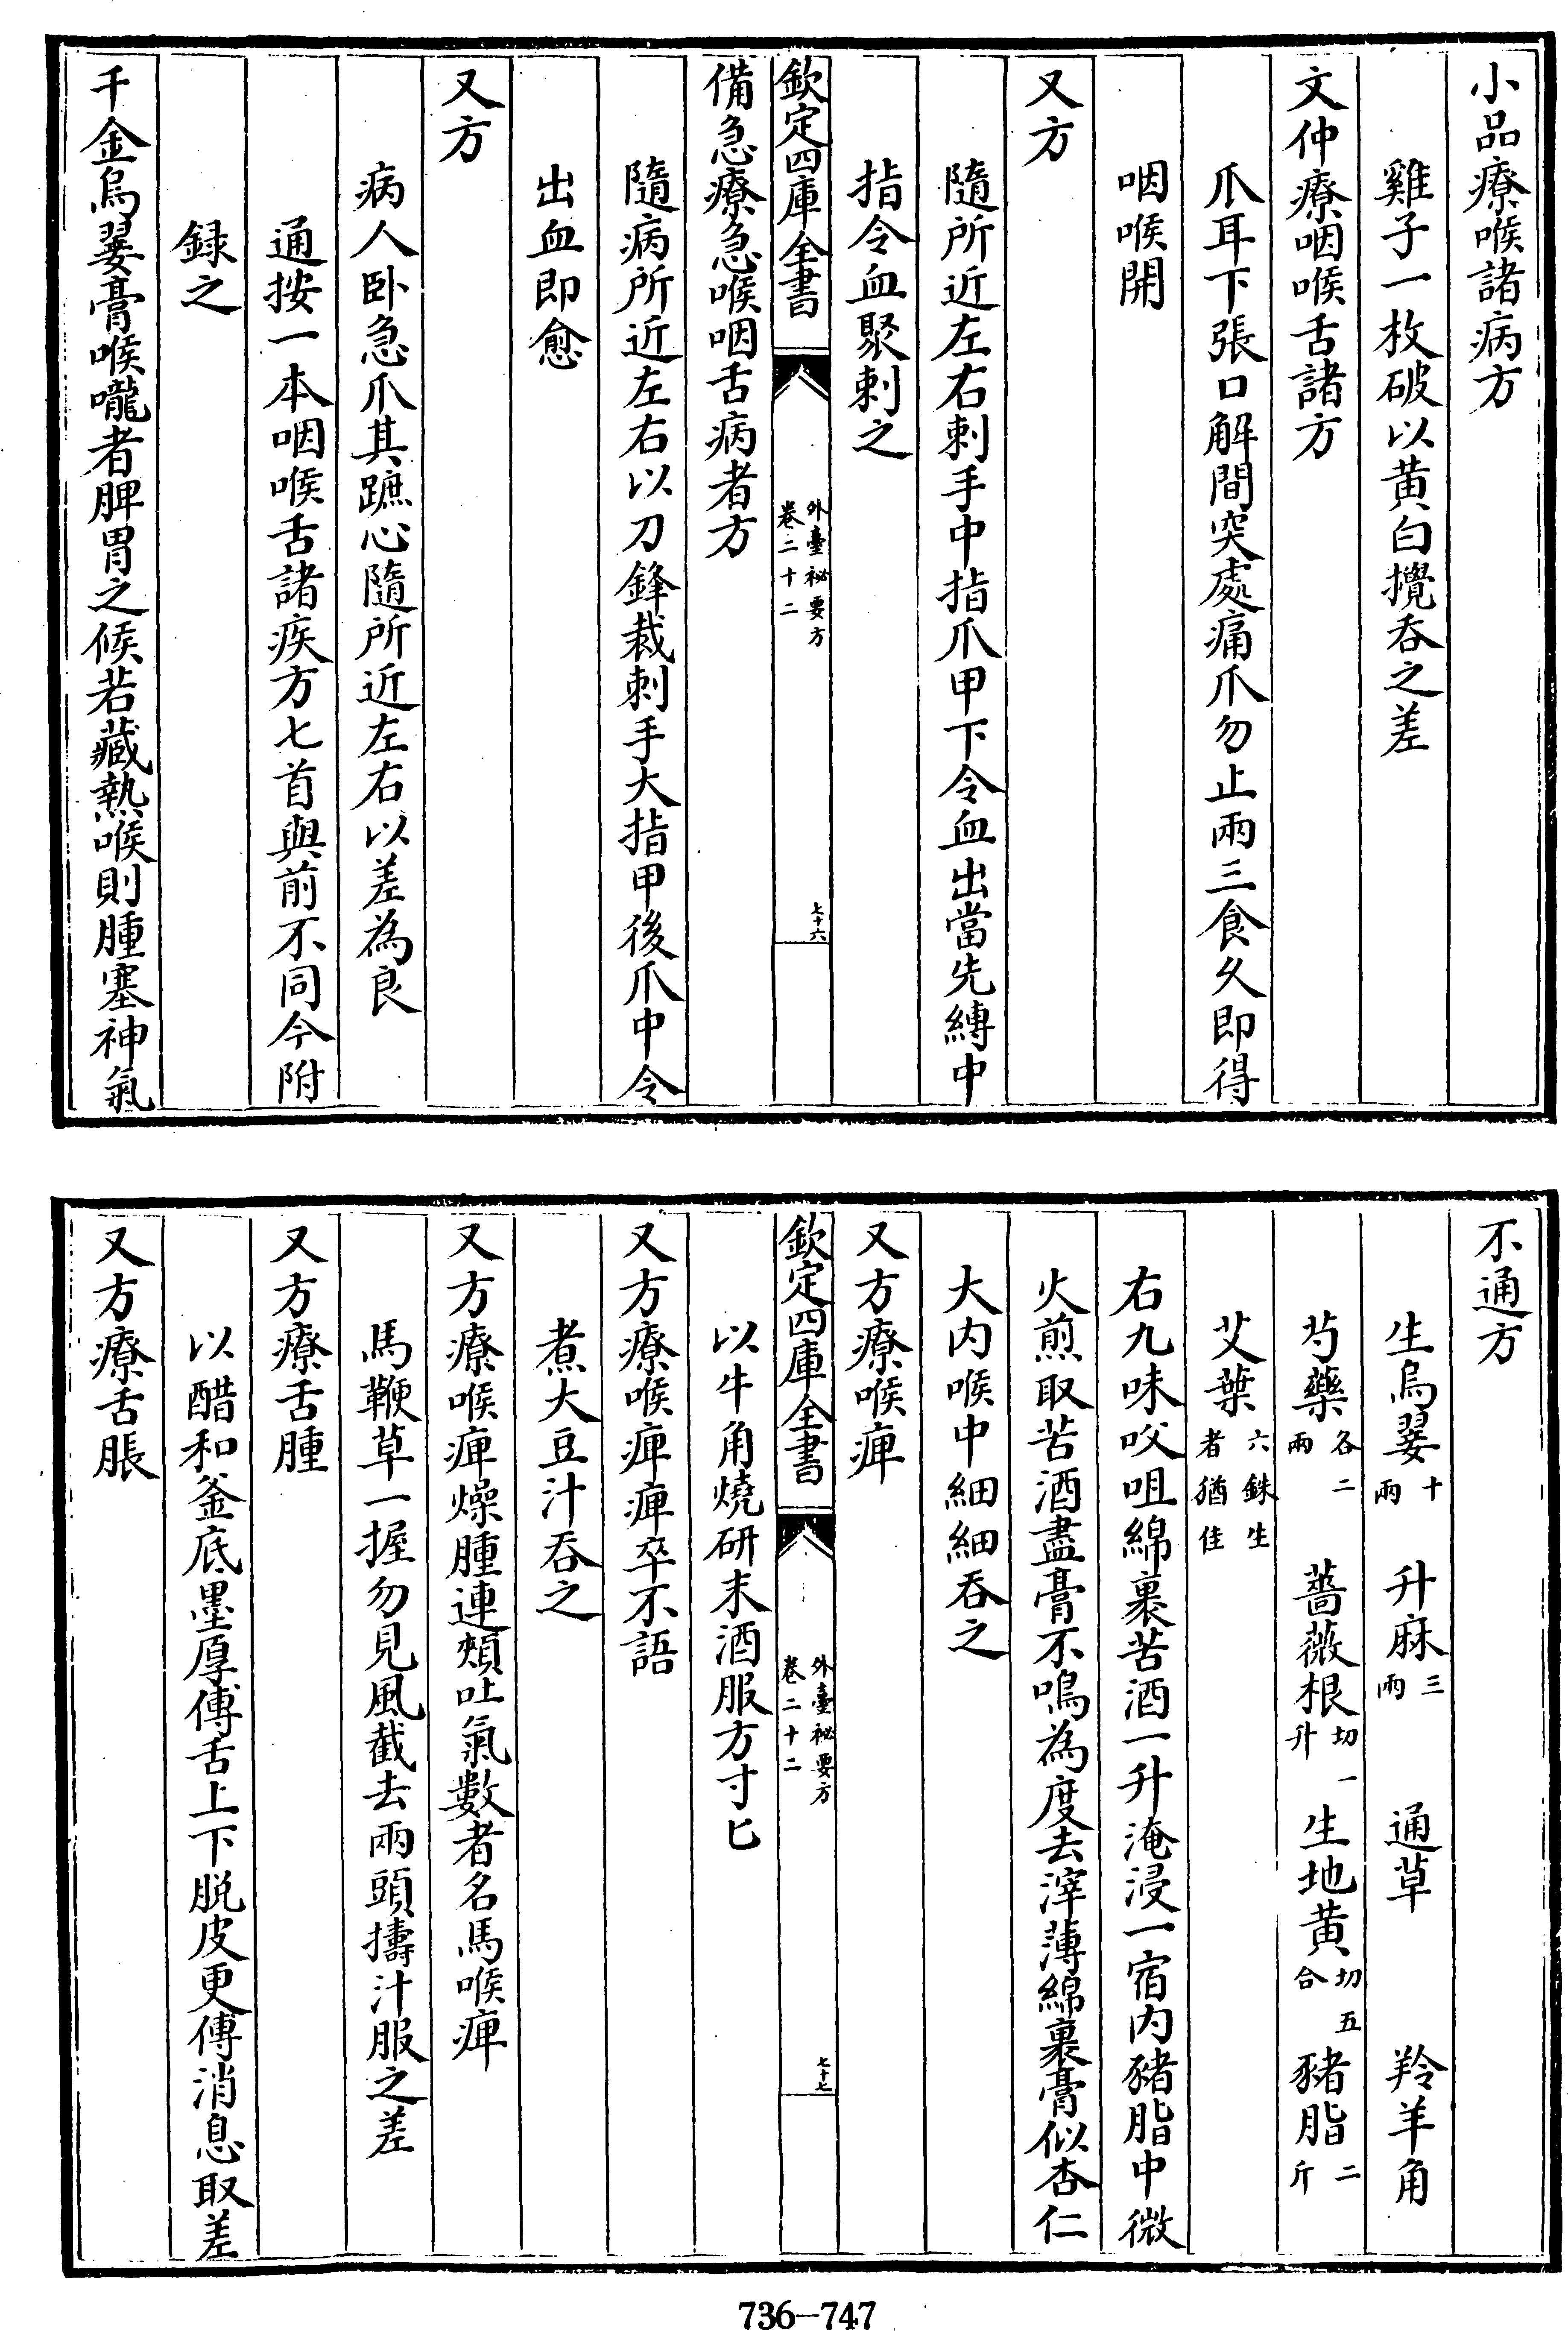 小品療喉諸病方
雞子一枚破以黄白攪呑之差
文仲療咽喉舌諸方
爪耳下張口解間突處痛爪勿止兩三食久即得
咽喉開
又方
隨所近左右刺手中指爪甲下令血出當先縳中
指令血聚刺之
欽定四庫全書
外臺祕要方
卷二十二
七十六
備急療急喉咽舌病者方
隨病所近左右以刀鋒裁刺手大指甲後爪中令
出血即愈
又方
病人卧急爪其蹠心隨所近左右以差為良
通按一本咽喉舌諸疾方七首與前不同今附
録之
千金烏翣膏喉嚨者脾胃之候若藏熱喉則腫塞神氣
不通方
生烏翣十兩 升麻三兩 通草 羚羊角
芍藥各二兩 薔薇根切一升 生地黄切五合 豬脂二斤
艾葉六銖生者猶佳
右九味㕮咀綿裹苦酒一升淹浸一宿内豬脂中微
火煎取苦酒盡膏不鳴為度去滓薄綿裹膏似杏仁
大内喉中細細呑之
又方療喉痺
欽定四庫全書
外臺祕要方
卷二十二
七十七
以牛角燒研末酒服方寸匕
又方療喉痺痺卒不語
煮大豆汁呑之
又方療喉痺燥腫連頰吐氣數者名馬喉痺
馬鞭草一握勿見風截去兩頭擣汁服之差
又方療舌腫
以醋和釜底墨厚傅舌上下脱皮更傅消息取差
又方療舌脹
736—747